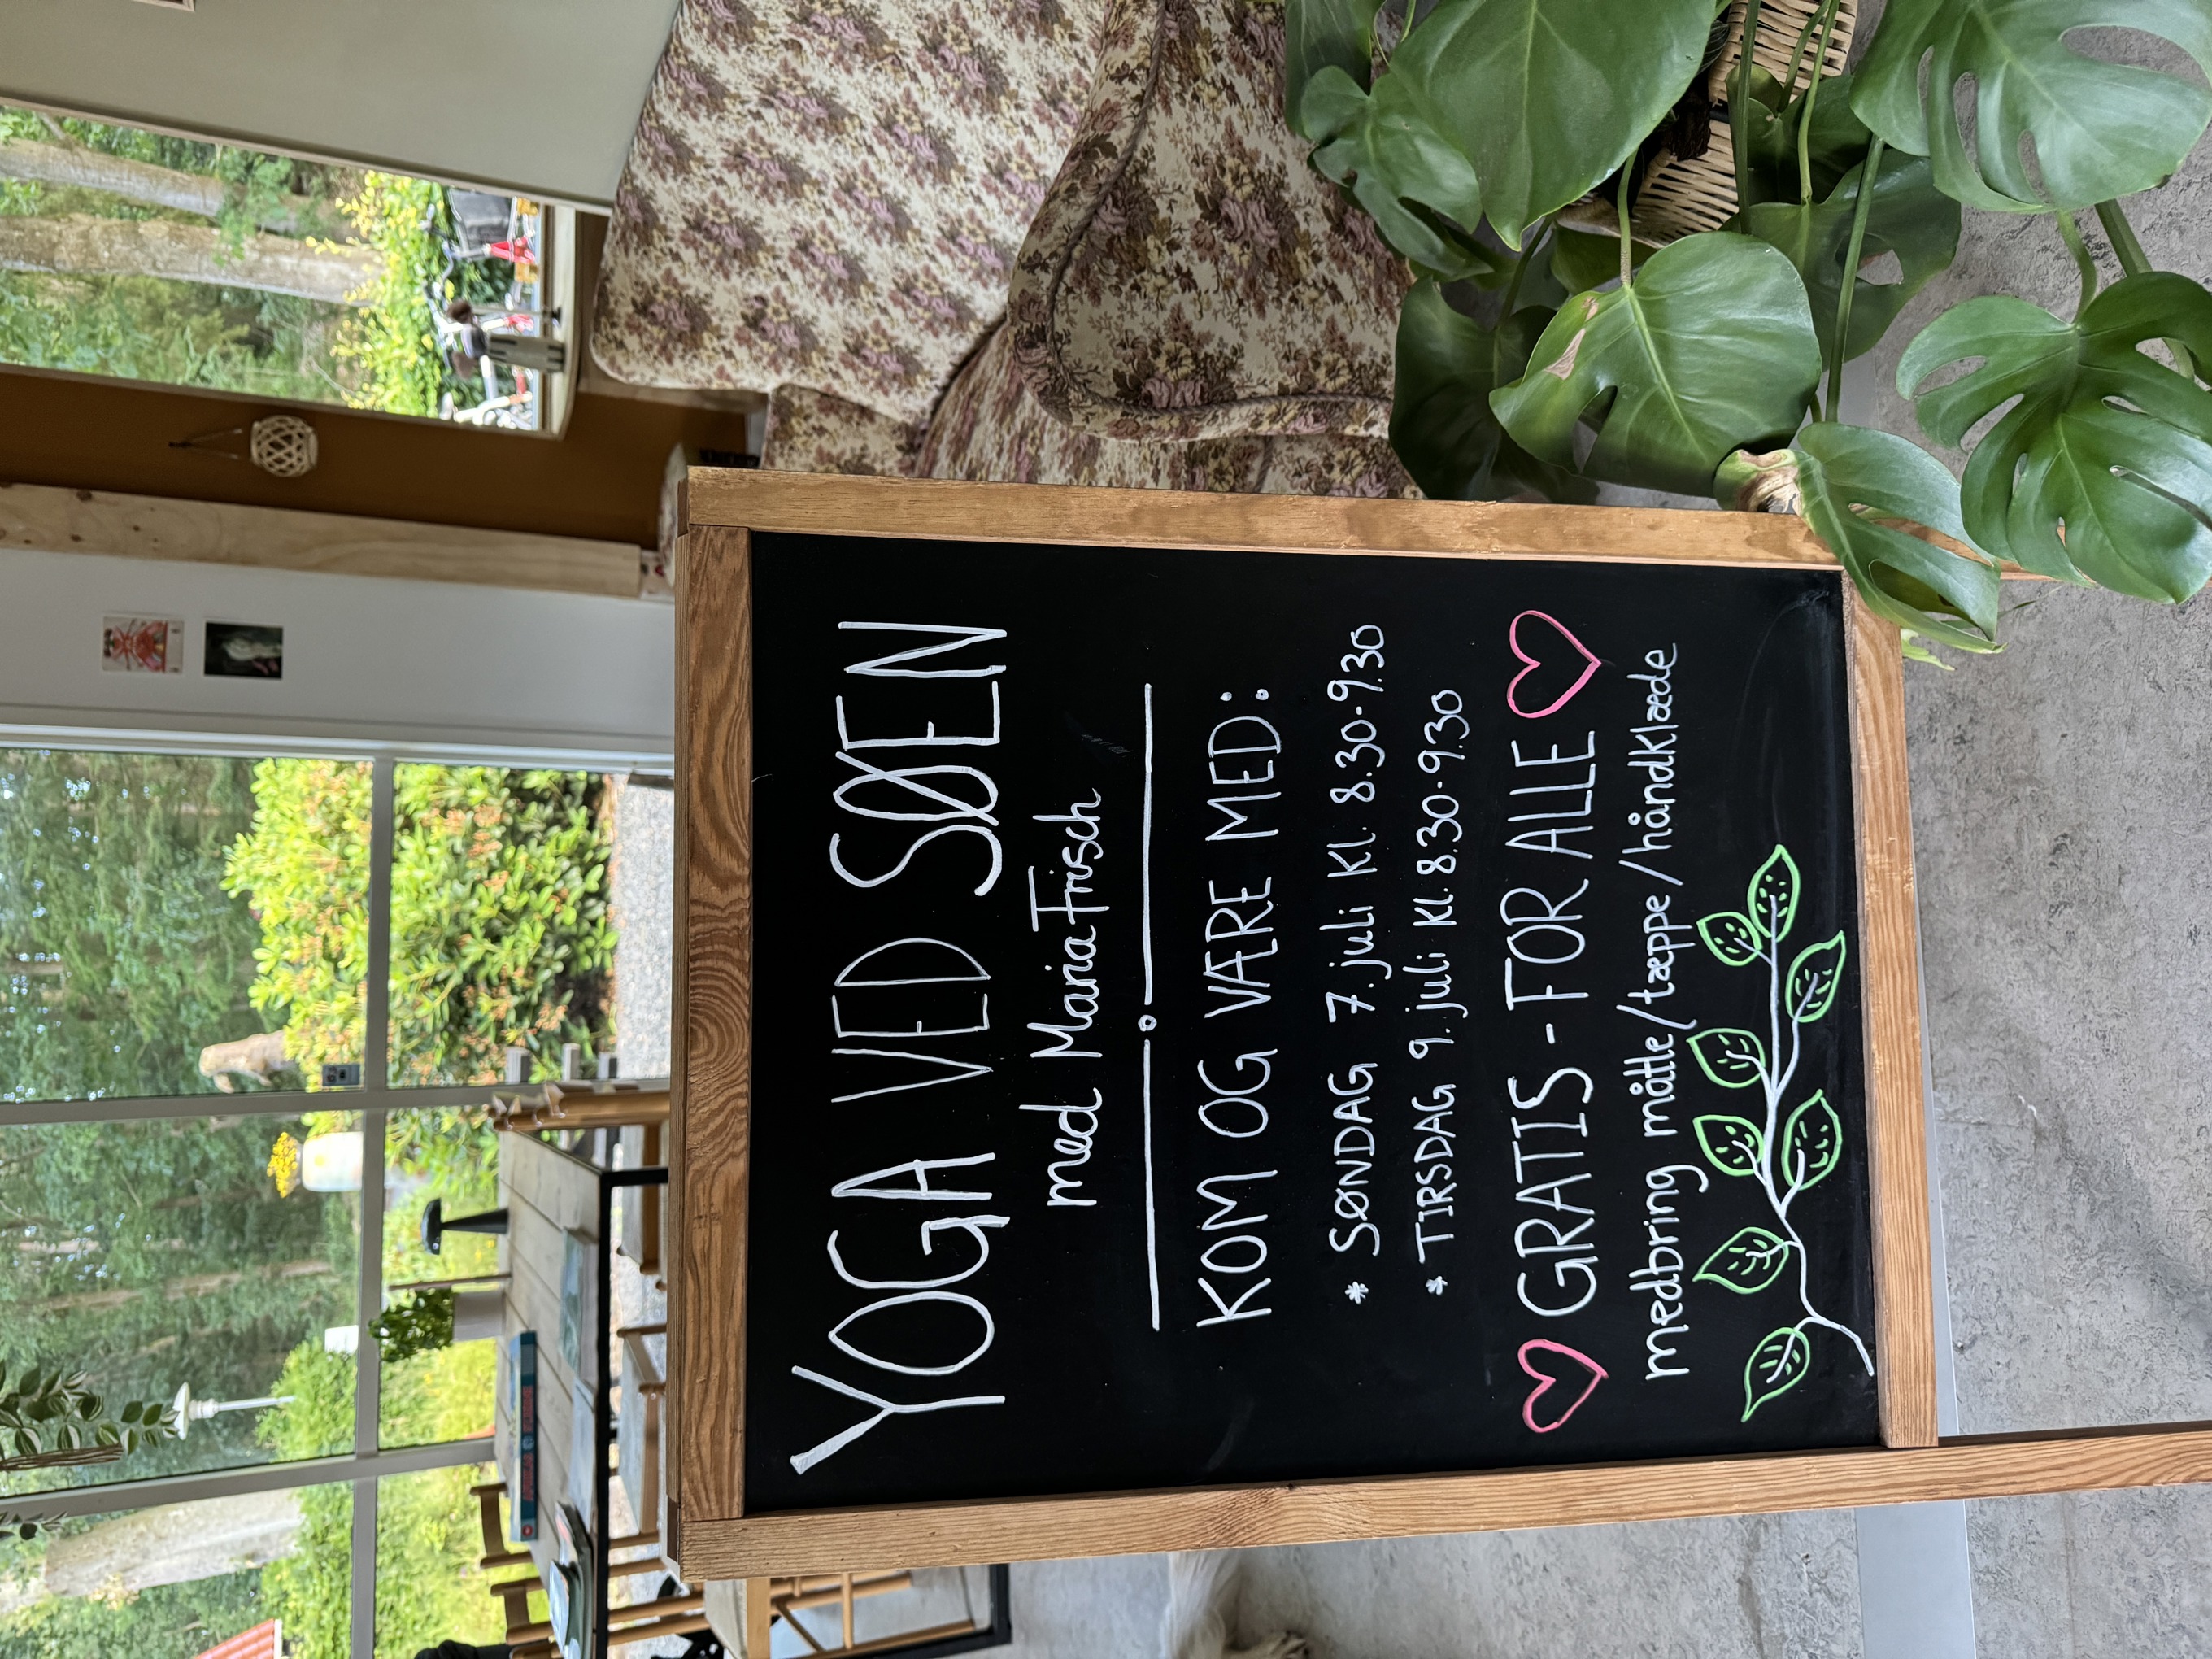 YOGA VED SØEN
med Maria Frisch
KOM OG VÆRE MED:
* SØNDAG 7. juli Kl. 8.30-9.30
* TIRSDAG 9. juli Kl. 8.30-9.30
GRATIS - FOR ALLE
medbring måtte/tæppe/håndklæde